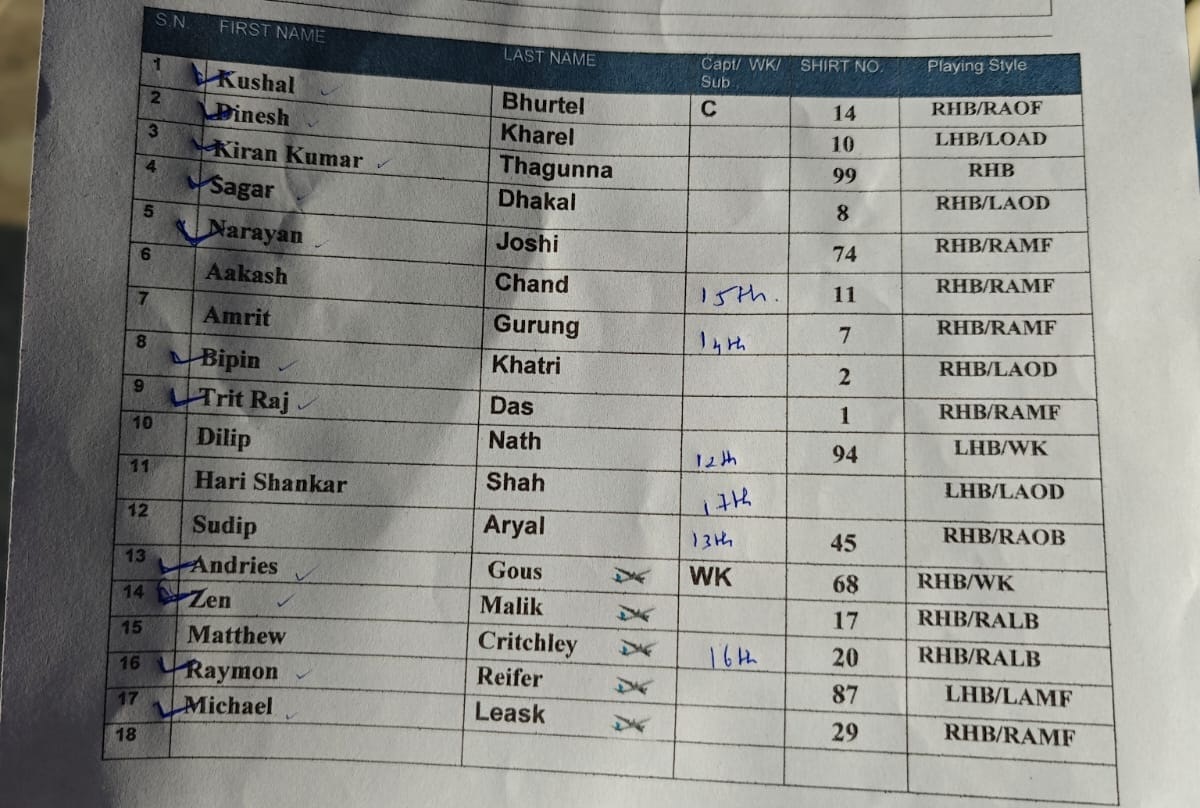 S.N. FIRST NAME LAST NAME Capt/ WK/ Sub SHIRT NO. Playing Style
1 Kushal Bhurtel C 14 RHB/RAOF
2 Dinesh Kharel 10 LHB/LOAD
3 Kiran Kumar Thagunna 99 RHB
4 Sagar Dhakal 8 RHB/LAOD
5 Narayan Joshi 74 RHB/RAMF
6 Aakash Chand 15th. 11 RHB/RAMF
7 Amrit Gurung 14th 7 RHB/RAMF
8 Bipin Khatri 2 RHB/LAOD
9 Trit Raj Das 1 RHB/RAMF
10 Dilip Nath 12th 94 LHB/WK
11 Hari Shankar Shah 17th LHB/LAOD
12 Sudip Aryal 13th 45 RHB/RAOB
13 Andries Gous WK 68 RHB/WK
14 Zen Malik 17 RHB/RALB
15 Matthew Critchley 16th 20 RHB/RALB
16 Raymon Reifer 87 LHB/LAMF
17 Michael Leask 29 RHB/RAMF
18